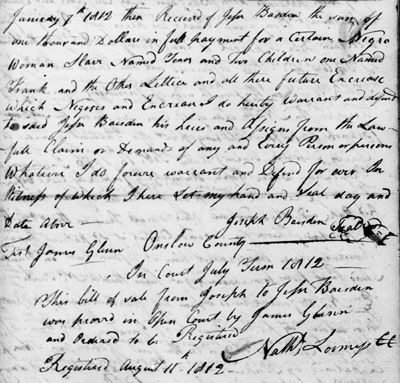 January 9th 1812 then Received of Jesse Barsden the sum of
one thousand Dollars in full payment for a Certain Negro
Woman Slave Named Tenor and Two Children one Named
Frank and the Other Lettice and all there future Encrease
Which Negroes and Encrease I do hereby Warrant and defend
to said Jesse Barsden his heirs and Assigns from the Law-
full Claims or Demands of any and Every Person or persons
Whatever I do forever warrant and Defend for ever In
Witness of which I here Set my hand and Seal day and
Date Above Joseph Barsden Seal
Test James Glenn Onslow County
In Court July Term 1812
This bill of sale from Joseph to Jesse Barsden
was proved in Open Court by James Glenn
and Ordered to be Registered
Nathl. Loomiss CC
Registered August 11th 1812